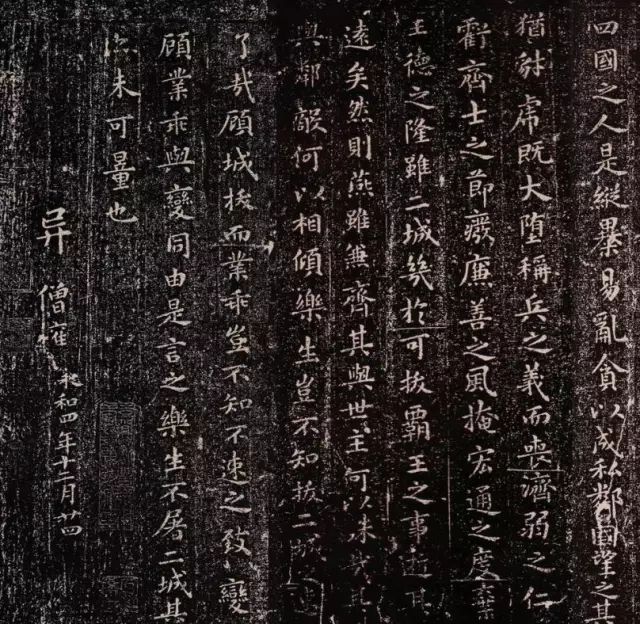 四國之人是縱暴易亂貪以成私鄰國望之其
猶豺虎既大墮稱兵之義而喪濟弱之仁
虧齊士之節廢廉善之風掩宏通之度棄
王德之隆雖二城幾於可拔霸王之事逝其
遠矣然則燕雖兼齊其與世主何以殊哉其
與鄰敵何以相傾樂生豈不知拔二城
了哉顧城拔而業乖豈不知不速之致變
顧業乖與變同由是言之樂生不屠二城其
亦未可量也
异 僧權 永和四年十二月廿四